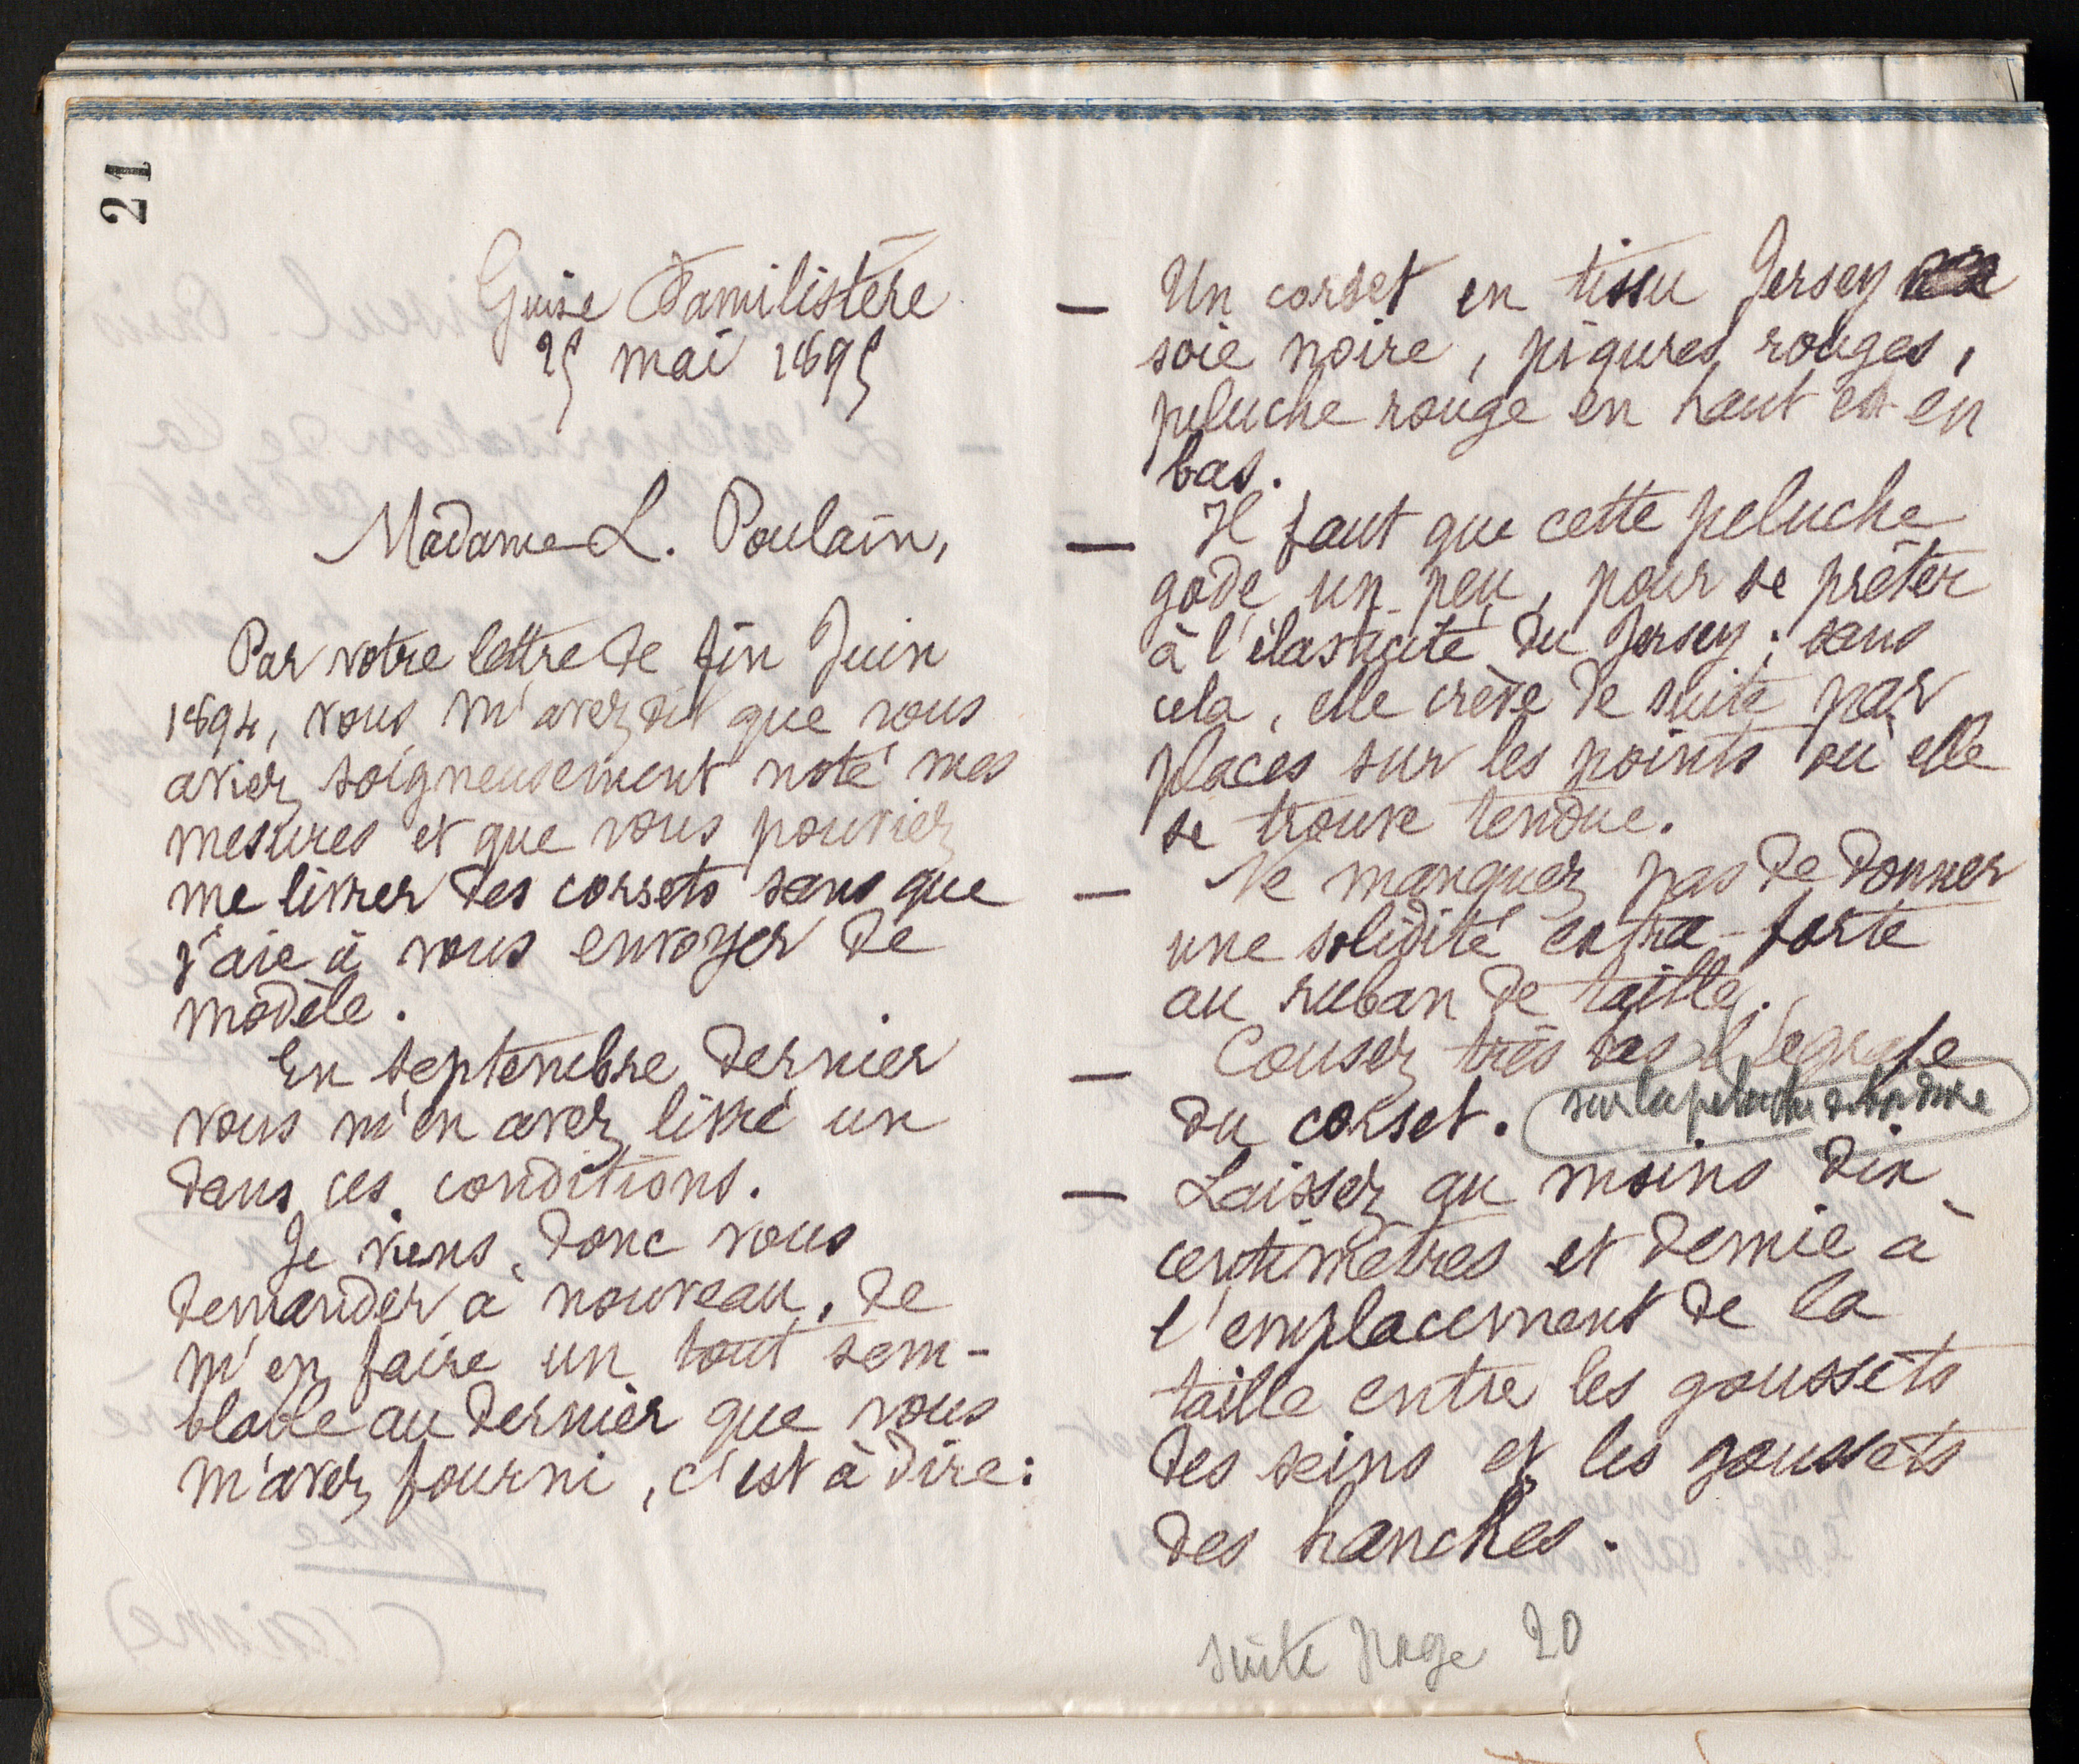 21
Guise Familistère
25 mai 1895
Madame L. Poulain,
Par votre lettre de fin Juin
1894, vous m'avez dit que vous
aviez soigneusement noté mes
mesures et que vous pouviez
me livrer des corsets sans que
j'aie à vous envoyer de
modèle.
En septembre dernier
vous m'en avez livré un
dans ces conditions.
Je viens donc vous
demander à nouveau, de
m'en faire un tout sem-
blable au dernier que vous
m'avez fourni, c'est à dire:
— Un corset en tissu Jersey
soie noire, piqures rouges,
peluche rouge en haut et en
bas.
— Il faut que cette peluche
gode un peu, pour se prêter
à l'élasticité du Jersey; sans
cela, elle crève de suite par
places sur les points où elle
se trouve tendue.
— Ne manquez pas de donner
une solidité extra-forte
au ruban de taille.
— Cousez très bas l'agrafe
du corset. sur la peluche
— Laissez au moins dix
centimètres et demie à
l'emplacement de la
taille entre les goussets
des seins et les goussets
des hanches.
suite page 20